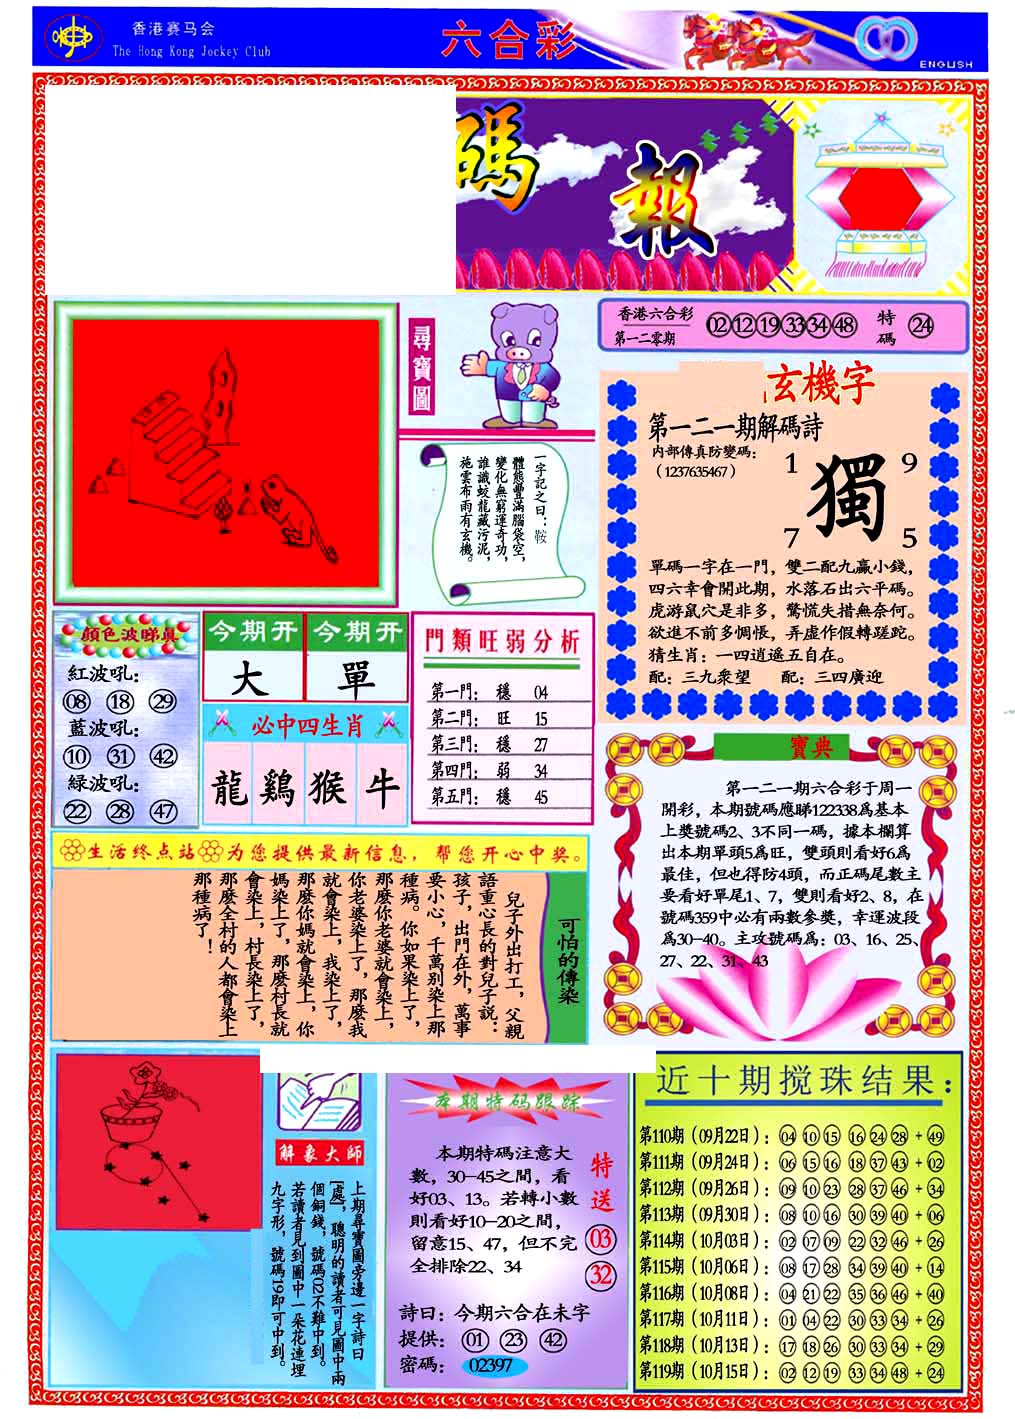 香港赛马会
The Hong Kong Jockey Club
六合彩
ENGLISH
碼報
尋寶圖
一字記之曰：鞍
體態豐滿腦袋空，
變化無窮運奇功，
誰識蛟龍藏污泥，
施雲布雨有玄機。
香港六合彩
第一二零期
02 12 19 33 34 48
特碼
24
玄機字
第一二一期解碼詩
内部傳真防變碼：
（1237635467）
1 9
獨
7 5
單碼一字在一門，雙二配九贏小錢，
四六幸會開此期，水落石出六平碼。
虎游鼠穴是非多，驚慌失措無奈何。
欲進不前多惆悵，弄虚作假轉蹉跎。
猜生肖：一四逍遥五自在。
配：三九衆望 配：三四廣迎
顔色波睇真
紅波吼：
08 18 29
藍波吼：
10 31 42
緑波吼：
22 28 47
今期開 今期開
大 單
必中四生肖
龍 鷄 猴 牛
門類旺弱分析
第一門： 穩 04
第二門： 旺 15
第三門： 穩 27
第四門： 弱 34
第五門： 穩 45
寶典
第一二一期六合彩于周一
開彩，本期號碼應睇122338爲基本
上獎號碼2、3不同一碼，據本欄算
出本期單頭5爲旺，雙頭則看好6爲
最佳，但也得防4頭，而正碼尾數主
要看好單尾1、7，雙則看好2、8，在
號碼359中必有兩數參獎，幸運波段
爲30-40。主攻號碼爲：03、16、25、
27、22、31、43
生活终点站 为您提供最新信息，帮您开心中奖。
可怕的傳染
兒子外出打工，父親
語重心長的對兒子説：
孩子，出門在外，萬事
要小心，千萬别染上那
種病。你如果染上了，
那麽你老婆就會染上，
你老婆染上了，那麽我
就會染上，我染上了，
那麽你媽就會染上，你
媽染上了，那麽村長就
會染上，村長染上了，
那麽全村的人都會染上
那種病了！
解象大師
上期尋寶圖旁邊一字詩曰
[處]，聰明的讀者可見圖中兩
個銅錢，號碼02不難中到。
若讀者見到圖中一朵花連埋
九字形，號碼19即可中到。
本期特码跟踪
本期特碼注意大
數，30-45之間，看
好03、13。若轉小數
則看好10-20之間，
留意15、47，但不完
全排除22、34
特送
03
32
詩曰：今期六合在未字
提供： 01 23 42
密碼： 02397
近十期搅珠结果：
第110期（09月22日）：04 10 15 16 24 28 + 49
第111期（09月24日）：06 15 16 18 37 43 + 02
第112期（09月26日）：09 10 23 28 37 46 + 34
第113期（09月30日）：08 10 16 30 39 40 + 06
第114期（10月03日）：02 07 09 22 32 46 + 26
第115期（10月06日）：08 17 28 34 39 40 + 14
第116期（10月08日）：04 21 22 35 36 46 + 40
第117期（10月11日）：01 04 22 30 33 34 + 26
第118期（10月13日）：17 18 26 30 33 34 + 29
第119期（10月15日）：02 12 19 33 34 48 + 24